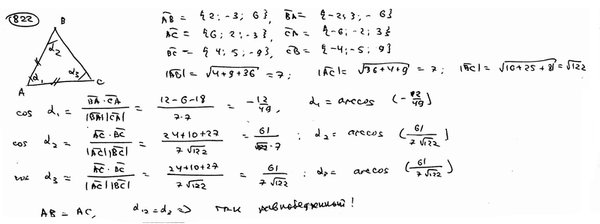 822
B
α₂
α₁
α₃
A
C
A̅B̅ = {2; -3; 6}, B̅A̅ = {-2; 3; -6}
A̅C̅ = {6; 2; -3}, C̅A̅ = {-6; -2; 3}
B̅C̅ = {4; 5; -9}, C̅B̅ = {-4; -5; 9}
|A̅B̅| = √4+9+36 = 7; |A̅C̅| = √36+4+9 = 7; |B̅C̅| = √16+25+81 = √122
cos α₁ = B̅A̅ · C̅A̅ / |B̅A̅||C̅A̅| = 12-6-18 / 7·7 = -12/49, α₁ = arccos (-12/49)
cos α₂ = A̅C̅ · B̅C̅ / |A̅C̅||B̅C̅| = 24+10+27 / 7√122 = 61 / √122·7; α₂ = arccos (61 / 7√122)
cos α₃ = A̅C̅ · B̅C̅ / |A̅C̅||B̅C̅| = 24+10+27 / 7√122 = 61 / 7√122; α₂ = arccos (61 / 7√122)
AB = AC, α₁₂ = α₂ ⇒ равнобедренный!